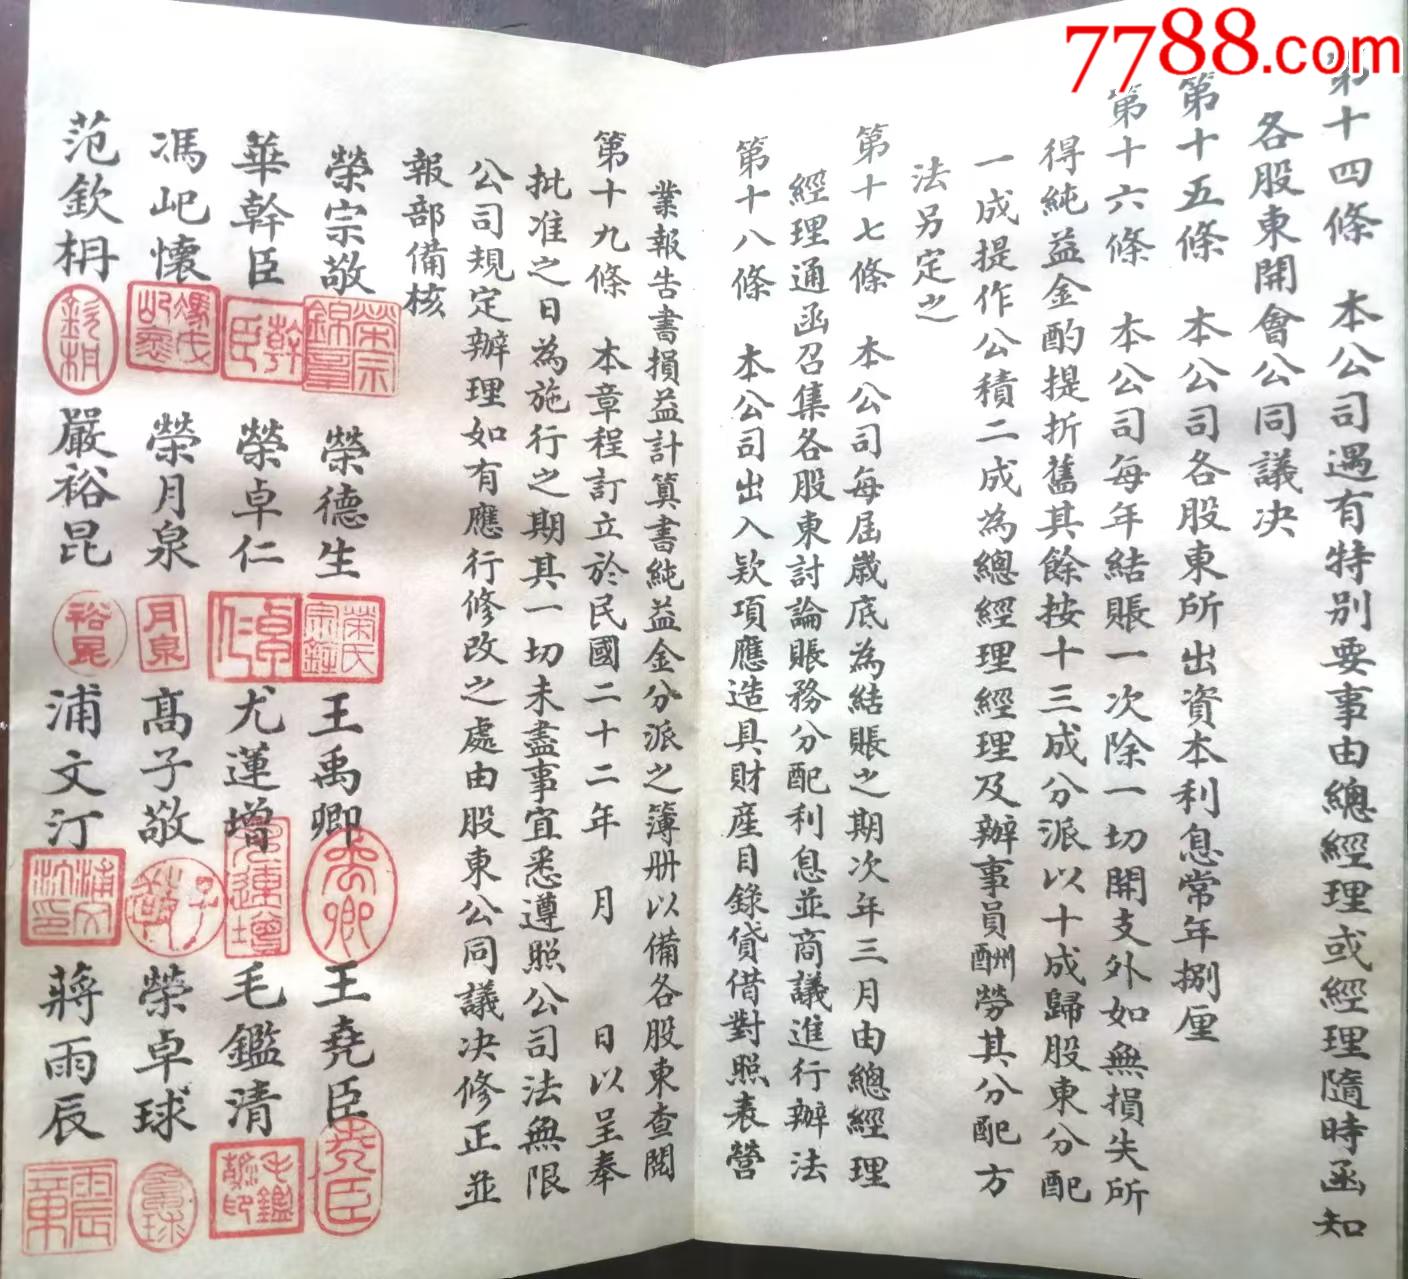 7788.com
第十四條　本公司遇有特別要事由總經理或經理隨時函知
各股東開會公同議决
第十五條　本公司各股東所出資本利息常年捌厘
第十六條　本公司每年結賬一次除一切開支外如無損失所
得純益金酌提折舊其餘按十三成分派以十成歸股東分配
一成提作公積二成為總經理經理及辦事員酬勞其分配方
法另定之
第十七條　本公司每屆歲底為結賬之期次年三月由總經理
經理通函召集各股東討論賬務分配利息並商議進行辦法
第十八條　本公司出入欵項應造具財產目錄貸借對照表營
業報告書損益計算書純益金分派之簿册以備各股東查閱
第十九條　本章程訂立於民國二十二年　月　　日以呈奉
批准之日為施行之期其一切未盡事宜悉遵照公司法無限
公司規定辦理如有應行修改之處由股東公同議决修正並
報部備核
榮宗敬　榮德生　王禹卿　王堯臣
華幹臣　榮卓仁　尤蓮增　毛鑑清
馮屺懷　榮月泉　高子敬　榮卓球
范欽枬　嚴裕昆　浦文汀　蔣雨辰
榮宗錦章
幹臣
榮氏宗銓
禹卿
堯臣
尤蓮增
毛鑑清印
月泉
子敬
裕昆
浦文汀印